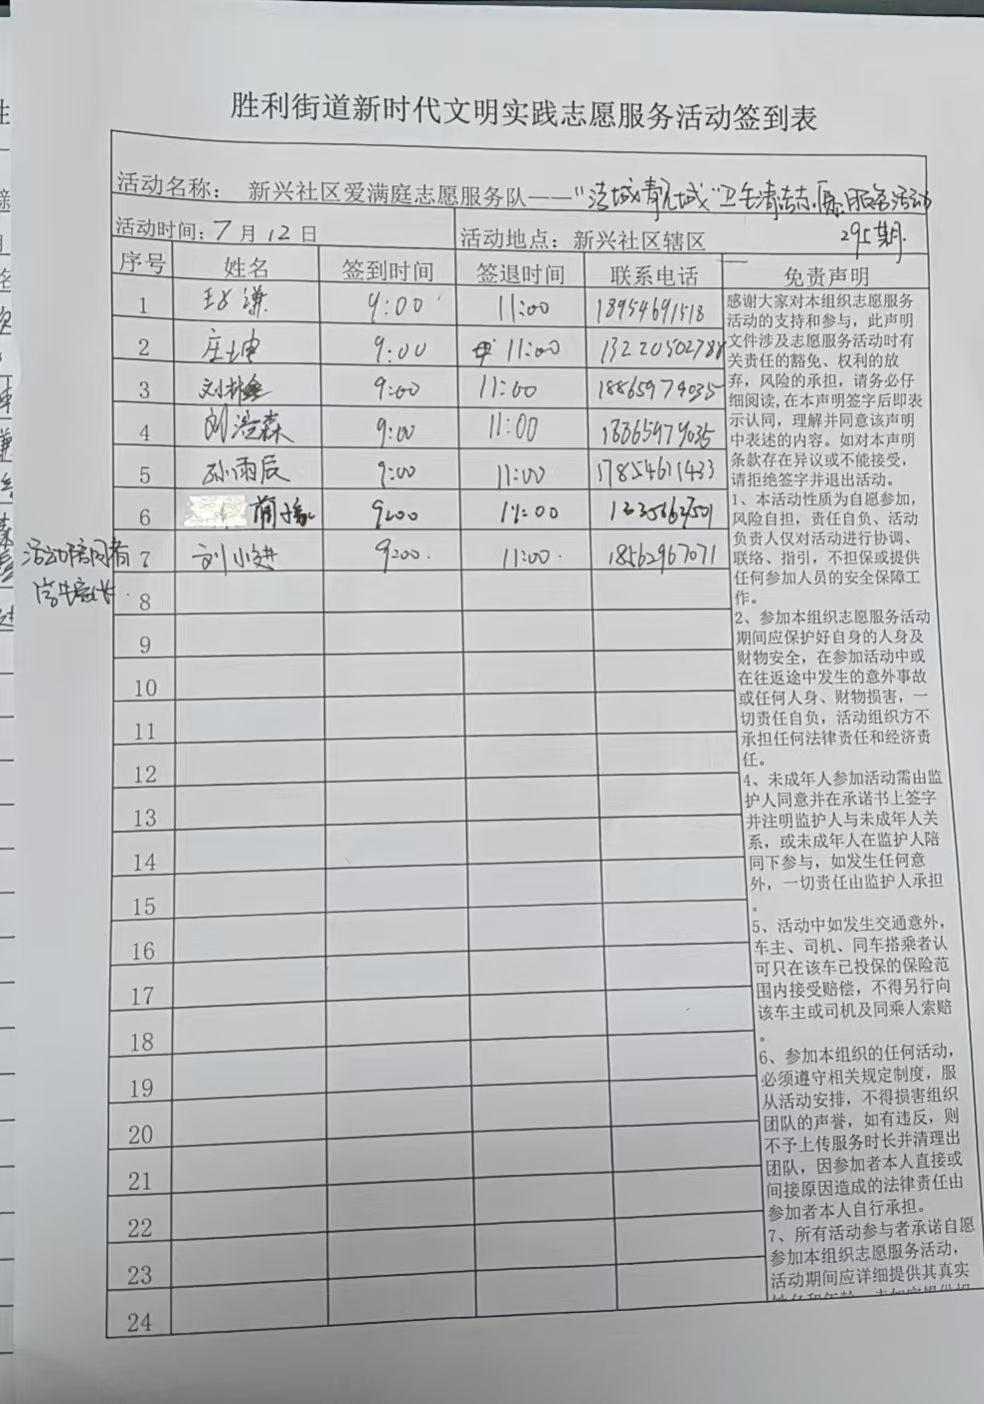 胜利街道新时代文明实践志愿服务活动签到表
活动名称： 新兴社区爱满庭志愿服务队——“洁城靓城”卫生清洁志愿服务活动
295期.
活动时间：7月12日 活动地点：新兴社区辖区
序号 姓名 签到时间 签退时间 联系电话 免责声明
1 9:00 11:00 18954691518
2 庄坤 9:00 11:00 1322050278
3 9:00 11:00 18865979035
4 刘浩森 9:00 11:00 18865979035
5 孙雨辰 9:00 11:00 17854611433
6 9:00 11:00
活动陪同者 7 刘小进 9:00 11:00 18562967071
学生家长
8
9
10
11
12
13
14
15
16
17
18
19
20
21
22
23
24
感谢大家对本组织志愿服务
活动的支持和参与，此声明
文件涉及志愿服务活动时有
关责任的豁免、权利的放
弃，风险的承担，请务必仔
细阅读,在本声明签字后即表
示认同，理解并同意该声明
中表述的内容。如对本声明
条款存在异议或不能接受，
请拒绝签字并退出活动。
1、本活动性质为自愿参加，
风险自担，责任自负、活动
负责人仅对活动进行协调、
联络、指引，不担保或提供
任何参加人员的安全保障工
作。
2、参加本组织志愿服务活动
期间应保护好自身的人身及
财物安全，在参加活动中或
在往返途中发生的意外事故
或任何人身、财物损害，一
切责任自负，活动组织方不
承担任何法律责任和经济责
任。
4、未成年人参加活动需由监
护人同意并在承诺书上签字
并注明监护人与未成年人关
系，或未成年人在监护人陪
同下参与，如发生任何意
外，一切责任由监护人承担
。
5、活动中如发生交通意外，
车主、司机、同车搭乘者认
可只在该车已投保的保险范
围内接受赔偿，不得另行向
该车主或司机及同乘人索赔
。
6、参加本组织的任何活动，
必须遵守相关规定制度，服
从活动安排，不得损害组织
团队的声誉，如有违反，则
不予上传服务时长并清理出
团队，因参加者本人直接或
间接原因造成的法律责任由
参加者本人自行承担。
7、所有活动参与者承诺自愿
参加本组织志愿服务活动，
活动期间应详细提供其真实